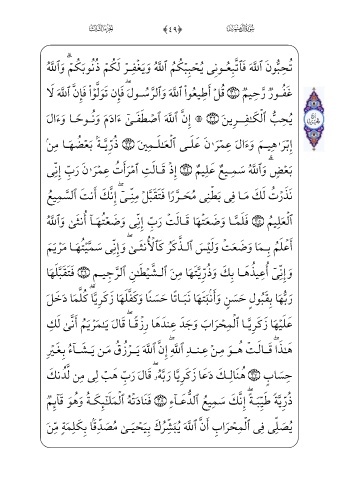 سُورَةُ آلِ عِمْرَانَ ﴿٤٩﴾ الجُزْءُ الثَّالِثُ
تُحِبُّونَ ٱللَّهَ فَٱتَّبِعُونِى يُحْبِبْكُمُ ٱللَّهُ وَيَغْفِرْ لَكُمْ ذُنُوبَكُمْ ۗ وَٱللَّهُ
غَفُورٌ رَّحِيمٌ ٣١ قُلْ أَطِيعُوا۟ ٱللَّهَ وَٱلرَّسُولَ ۖ فَإِن تَوَلَّوْا۟ فَإِنَّ ٱللَّهَ لَا
يُحِبُّ ٱلْكَٰفِرِينَ ٣٢ ۞ إِنَّ ٱللَّهَ ٱصْطَفَىٰٓ ءَادَمَ وَنُوحًا وَءَالَ
إِبْرَٰهِيمَ وَءَالَ عِمْرَٰنَ عَلَى ٱلْعَٰلَمِينَ ٣٣ ذُرِّيَّةًۢ بَعْضُهَا مِنۢ
بَعْضٍ ۗ وَٱللَّهُ سَمِيعٌ عَلِيمٌ ٣٤ إِذْ قَالَتِ ٱمْرَأَتُ عِمْرَٰنَ رَبِّ إِنِّى
نَذَرْتُ لَكَ مَا فِى بَطْنِى مُحَرَّرًا فَتَقَبَّلْ مِنِّىٓ ۖ إِنَّكَ أَنتَ ٱلسَّمِيعُ
ٱلْعَلِيمُ ٣٥ فَلَمَّا وَضَعَتْهَا قَالَتْ رَبِّ إِنِّى وَضَعْتُهَآ أُنثَىٰ وَٱللَّهُ
أَعْلَمُ بِمَا وَضَعَتْ وَلَيْسَ ٱلذَّكَرُ كَٱلْأُنثَىٰ ۖ وَإِنِّى سَمَّيْتُهَا مَرْيَمَ
وَإِنِّىٓ أُعِيذُهَا بِكَ وَذُرِّيَّتَهَا مِنَ ٱلشَّيْطَٰنِ ٱلرَّجِيمِ ٣٦ فَتَقَبَّلَهَا
رَبُّهَا بِقَبُولٍ حَسَنٍ وَأَنۢبَتَهَا نَبَاتًا حَسَنًا وَكَفَّلَهَا زَكَرِيَّا ۖ كُلَّمَا دَخَلَ
عَلَيْهَا زَكَرِيَّا ٱلْمِحْرَابَ وَجَدَ عِندَهَا رِزْقًا ۖ قَالَ يَٰمَرْيَمُ أَنَّىٰ لَكِ
هَٰذَا ۖ قَالَتْ هُوَ مِنْ عِندِ ٱللَّهِ ۖ إِنَّ ٱللَّهَ يَرْزُقُ مَن يَشَآءُ بِغَيْرِ
حِسَابٍ ٣٧ هُنَالِكَ دَعَا زَكَرِيَّا رَبَّهُۥ ۖ قَالَ رَبِّ هَبْ لِى مِن لَّدُنكَ
ذُرِّيَّةً طَيِّبَةً ۖ إِنَّكَ سَمِيعُ ٱلدُّعَآءِ ٣٨ فَنَادَتْهُ ٱلْمَلَٰٓئِكَةُ وَهُوَ قَآئِمٌ
يُصَلِّى فِى ٱلْمِحْرَابِ أَنَّ ٱللَّهَ يُبَشِّرُكَ بِيَحْيَىٰ مُصَدِّقًۢا بِكَلِمَةٍ مِّنَ